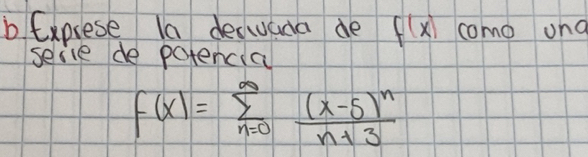 b. Exprese la derivada de f(x) como una
serie de potencia
f(x) = ∞∑n=0 (x-5)^n / n+3